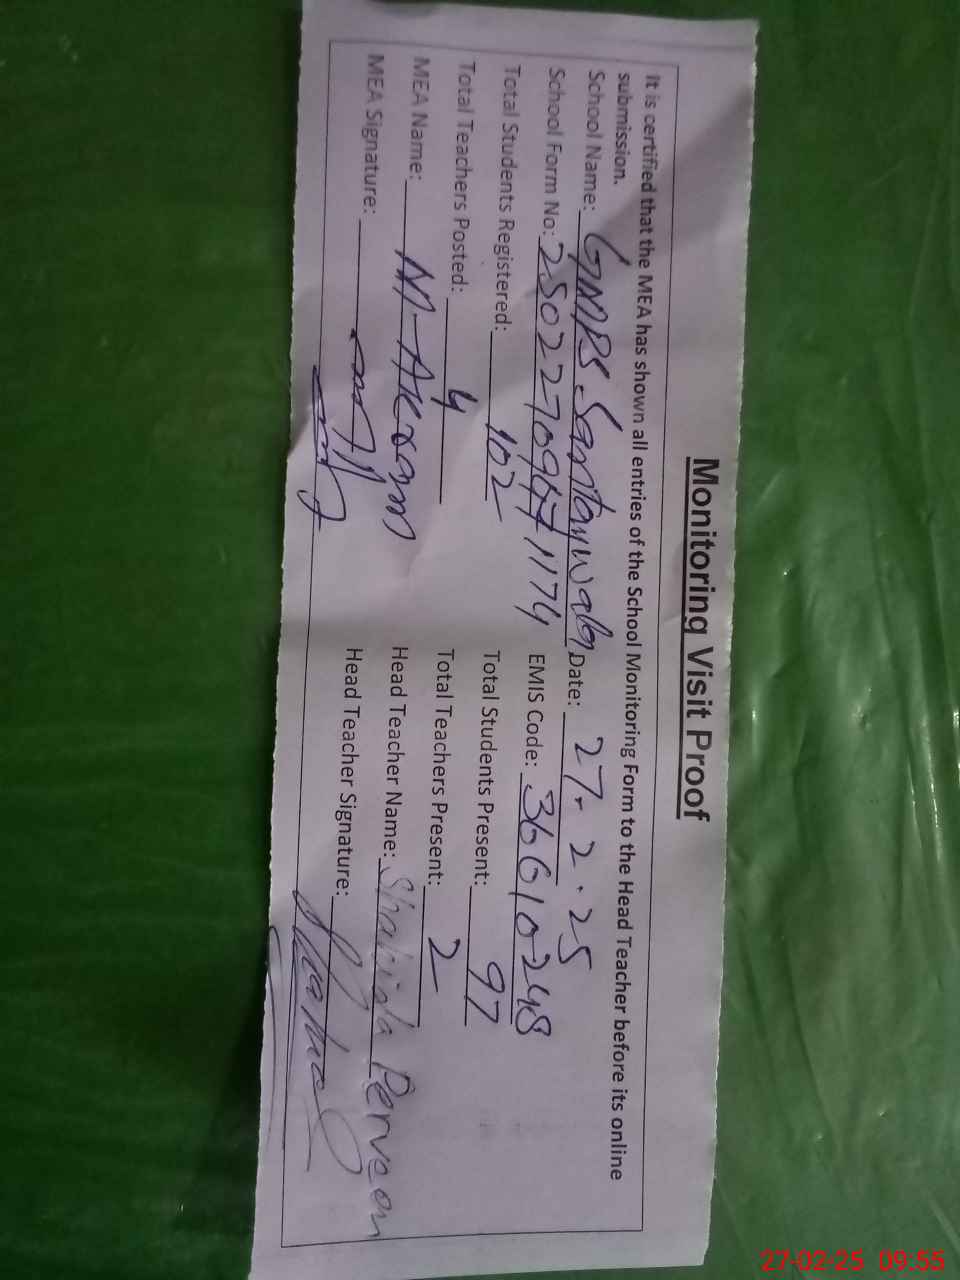 Monitoring Visit Proof
It is certified that the MEA has shown all entries of the School Monitoring Form to the Head Teacher before its online
submission.
School Name: GMPS Santaywala Date: 27-2-25
School Form No: 25022709471174 EMIS Code: 36610248
Total Students Registered: 102 Total Students Present: 97
Total Teachers Posted: 4 Total Teachers Present: 2
MEA Name: M-Akram Head Teacher Name: Shahida Perveen
MEA Signature: Head Teacher Signature:
27-02-25 09:55